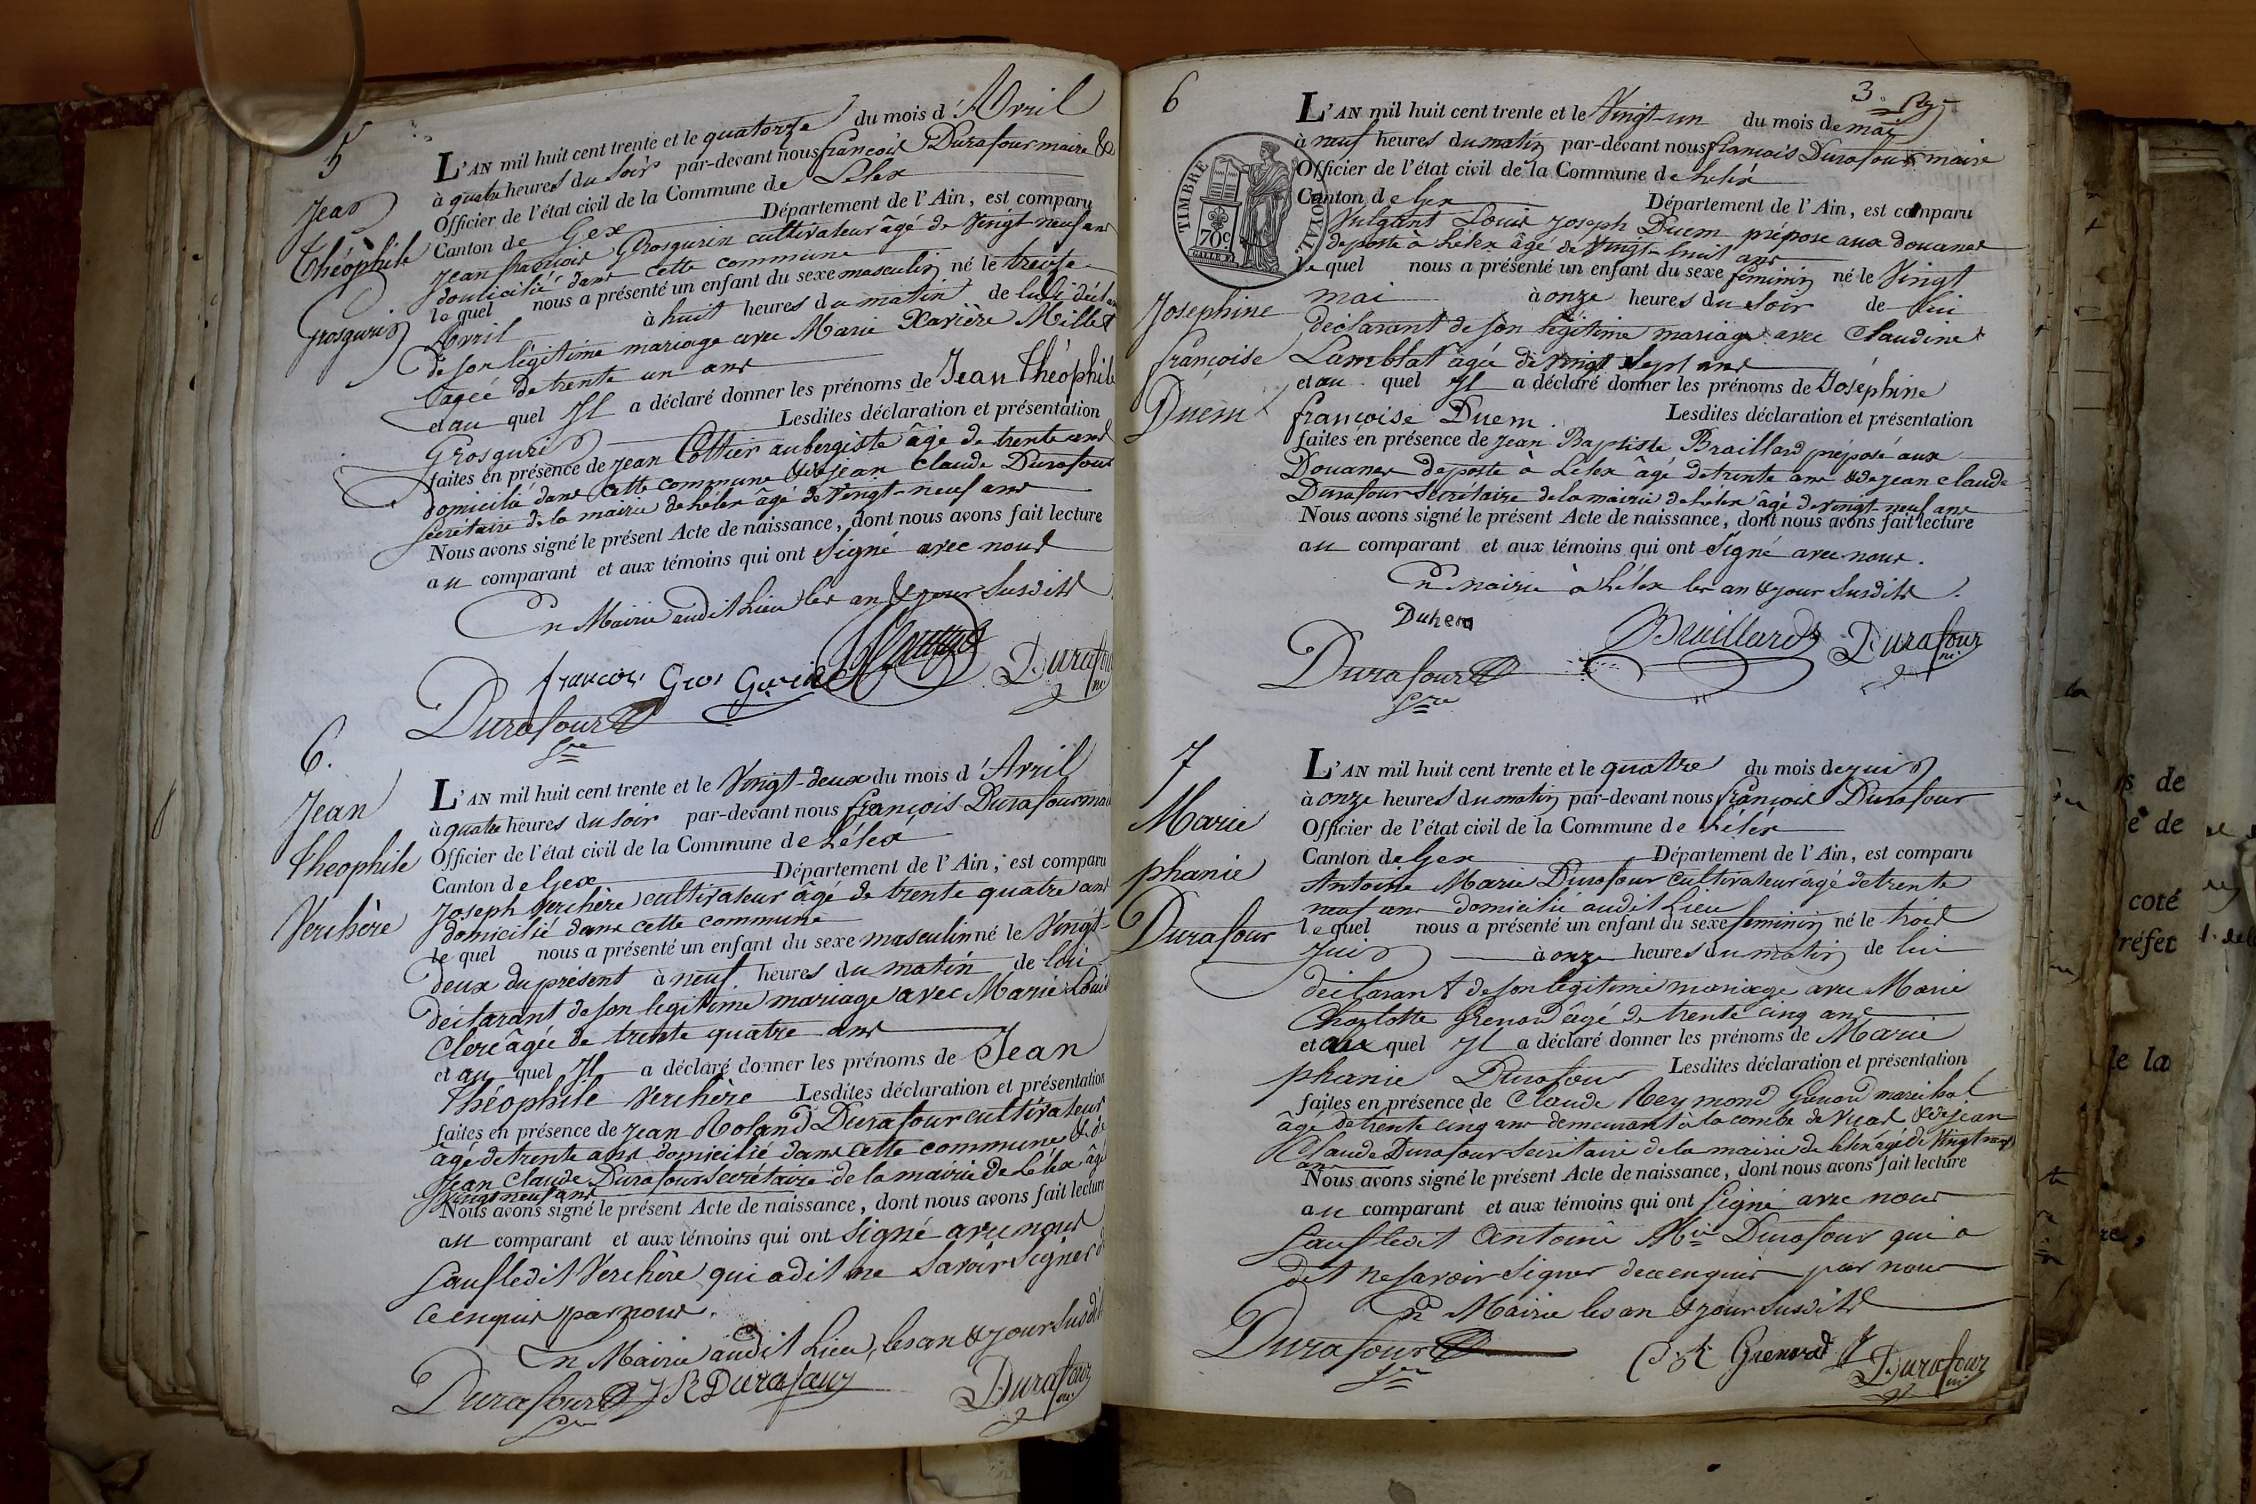 5
Jean
Théophile
Grosgurin
L'AN mil huit cent trente et le quatorze du mois d'Avril
à quatre heures du soir par-devant nous françois Durafour maire &
Officier de l'état civil de la Commune de Lélex
Canton de Gex Département de l'Ain, est comparu
Jean françois Grosgurin cultivateur âgé de Vingt neuf ans
domicilié dans cette commune
lequel nous a présenté un enfant du sexe masculin né le treize
Avril à huit heures du matin de lui décl
de son légitime mariage avec Marie Xavière Millet
agée de trente un ans
et au quel Il a déclaré donner les prénoms de Jean Théophile
Grosgurin Lesdites déclaration et présentation
faites en présence de Jean Cottier aubergiste âgé de trente ans
domicilié dans cette commune & de Jean Claude Durafour
Secrétaire de la mairie de Lélex âgé de Vingt-neuf ans
Nous avons signé le présent Acte de naissance, dont nous avons fait lecture
au comparant et aux témoins qui ont Signé avec nous
En Mairie audit Lieu les an & jour Susdits
françois Gros Gurin
Durafour
Durafour
Sre
6.
Jean
Theophile
Verchère
L'AN mil huit cent trente et le Vingt-deux du mois d'Avril
à quatre heures du soir par-devant nous françois Durafour mai
Officier de l'état civil de la Commune de Lélex
Canton de Gex Département de l'Ain, est comparu
Joseph Verchère cultivateur âgé de trente quatre ans
domicilié dans cette commune
lequel nous a présenté un enfant du sexe masculin né le Vingt-
deux du présent à neuf heures du matin de lui
déclarant de son légitime mariage avec Marie Louise
Clerc âgée de trente quatre ans
et au quel Il a déclaré donner les prénoms de Jean
Théophile Verchère Lesdites déclaration et présentation
faites en présence de Jean Roland Durafour cultivateur
âgé de trente ans domicilié dans cette commune & de
Jean Claude Durafour secrétaire de la mairie de Lélex âgé
Vingt neuf ans
Nous avons signé le présent Acte de naissance, dont nous avons fait lecture
au comparant et aux témoins qui ont Signé avec nous
Sauf ledit Verchère qui a dit ne Savoir Signer d
ce enquis par nous.
En Mairie audit Lieu, les an & jour Susdits
Durafour J R Durafour Durafour
Sre
3.
6
Josephine
françoise
Duem
TIMBRE ROYAL
70c
L'AN mil huit cent trente et le Vingt-un du mois de mai
à neuf heures du matin par-devant nous françois Durafour maire
Officier de l'état civil de la Commune de Lélex
Canton de Gex Département de l'Ain, est comparu
Vulgant Louis Joseph Duem préposé aux douanes
de poste à Lélex âgé de Vingt-huit ans
lequel nous a présenté un enfant du sexe féminin né le Vingt
mai à onze heures du Soir de lui
déclarant de son légitime mariage avec Claudine
Lamblat agée de Vingt Sept ans
et au quel Il a déclaré donner les prénoms de Joséphine
françoise Duem. Lesdites déclaration et présentation
faites en présence de Jean Baptiste Braillard préposé aux
Douanes de poste à Lélex âgé de trente ans & de Jean Claude
Durafour Secrétaire de la mairie de Lélex âgé de vingt-neuf ans
Nous avons signé le présent Acte de naissance, dont nous avons fait lecture
au comparant et aux témoins qui ont Signé avec nous.
En mairie à Lélex les an & jour Susdits.
Duhem
Durafour Braillard Durafour
Sre
7
Marie
phanie
Durafour
L'AN mil huit cent trente et le quatre du mois de juin
à onze heures du matin par-devant nous françois Durafour
Officier de l'état civil de la Commune de Lélex
Canton de Gex Département de l'Ain, est comparu
Antoine Marie Durafour cultivateur âgé de trente
neuf ans domicilié audit Lieu
lequel nous a présenté un enfant du sexe féminin né le trois
Juin à onze heures du matin de lui
déclarant de son légitime mariage avec Marie
Charlotte Grenard âgé de trente cinq ans
et au quel Il a déclaré donner les prénoms de Marie
phanie Durafour Lesdites déclaration et présentation
faites en présence de Claude Reymond Grenard maréchal
âgé de trente cinq ans demeurant à la combe de & de Jean
Claude Durafour secrétaire de la mairie de Lélex âgé de Vingt neuf
ans
Nous avons signé le présent Acte de naissance, dont nous avons fait lecture
au comparant et aux témoins qui ont Signé avec nous
Sauf ledit Antoine Mie Durafour qui a
dit ne savoir Signer de ce enquis par nous
En Mairie les an & jour Susdits
Durafour C R Grenard Durafour
Sre
is de
e de
coté
réfet
de la